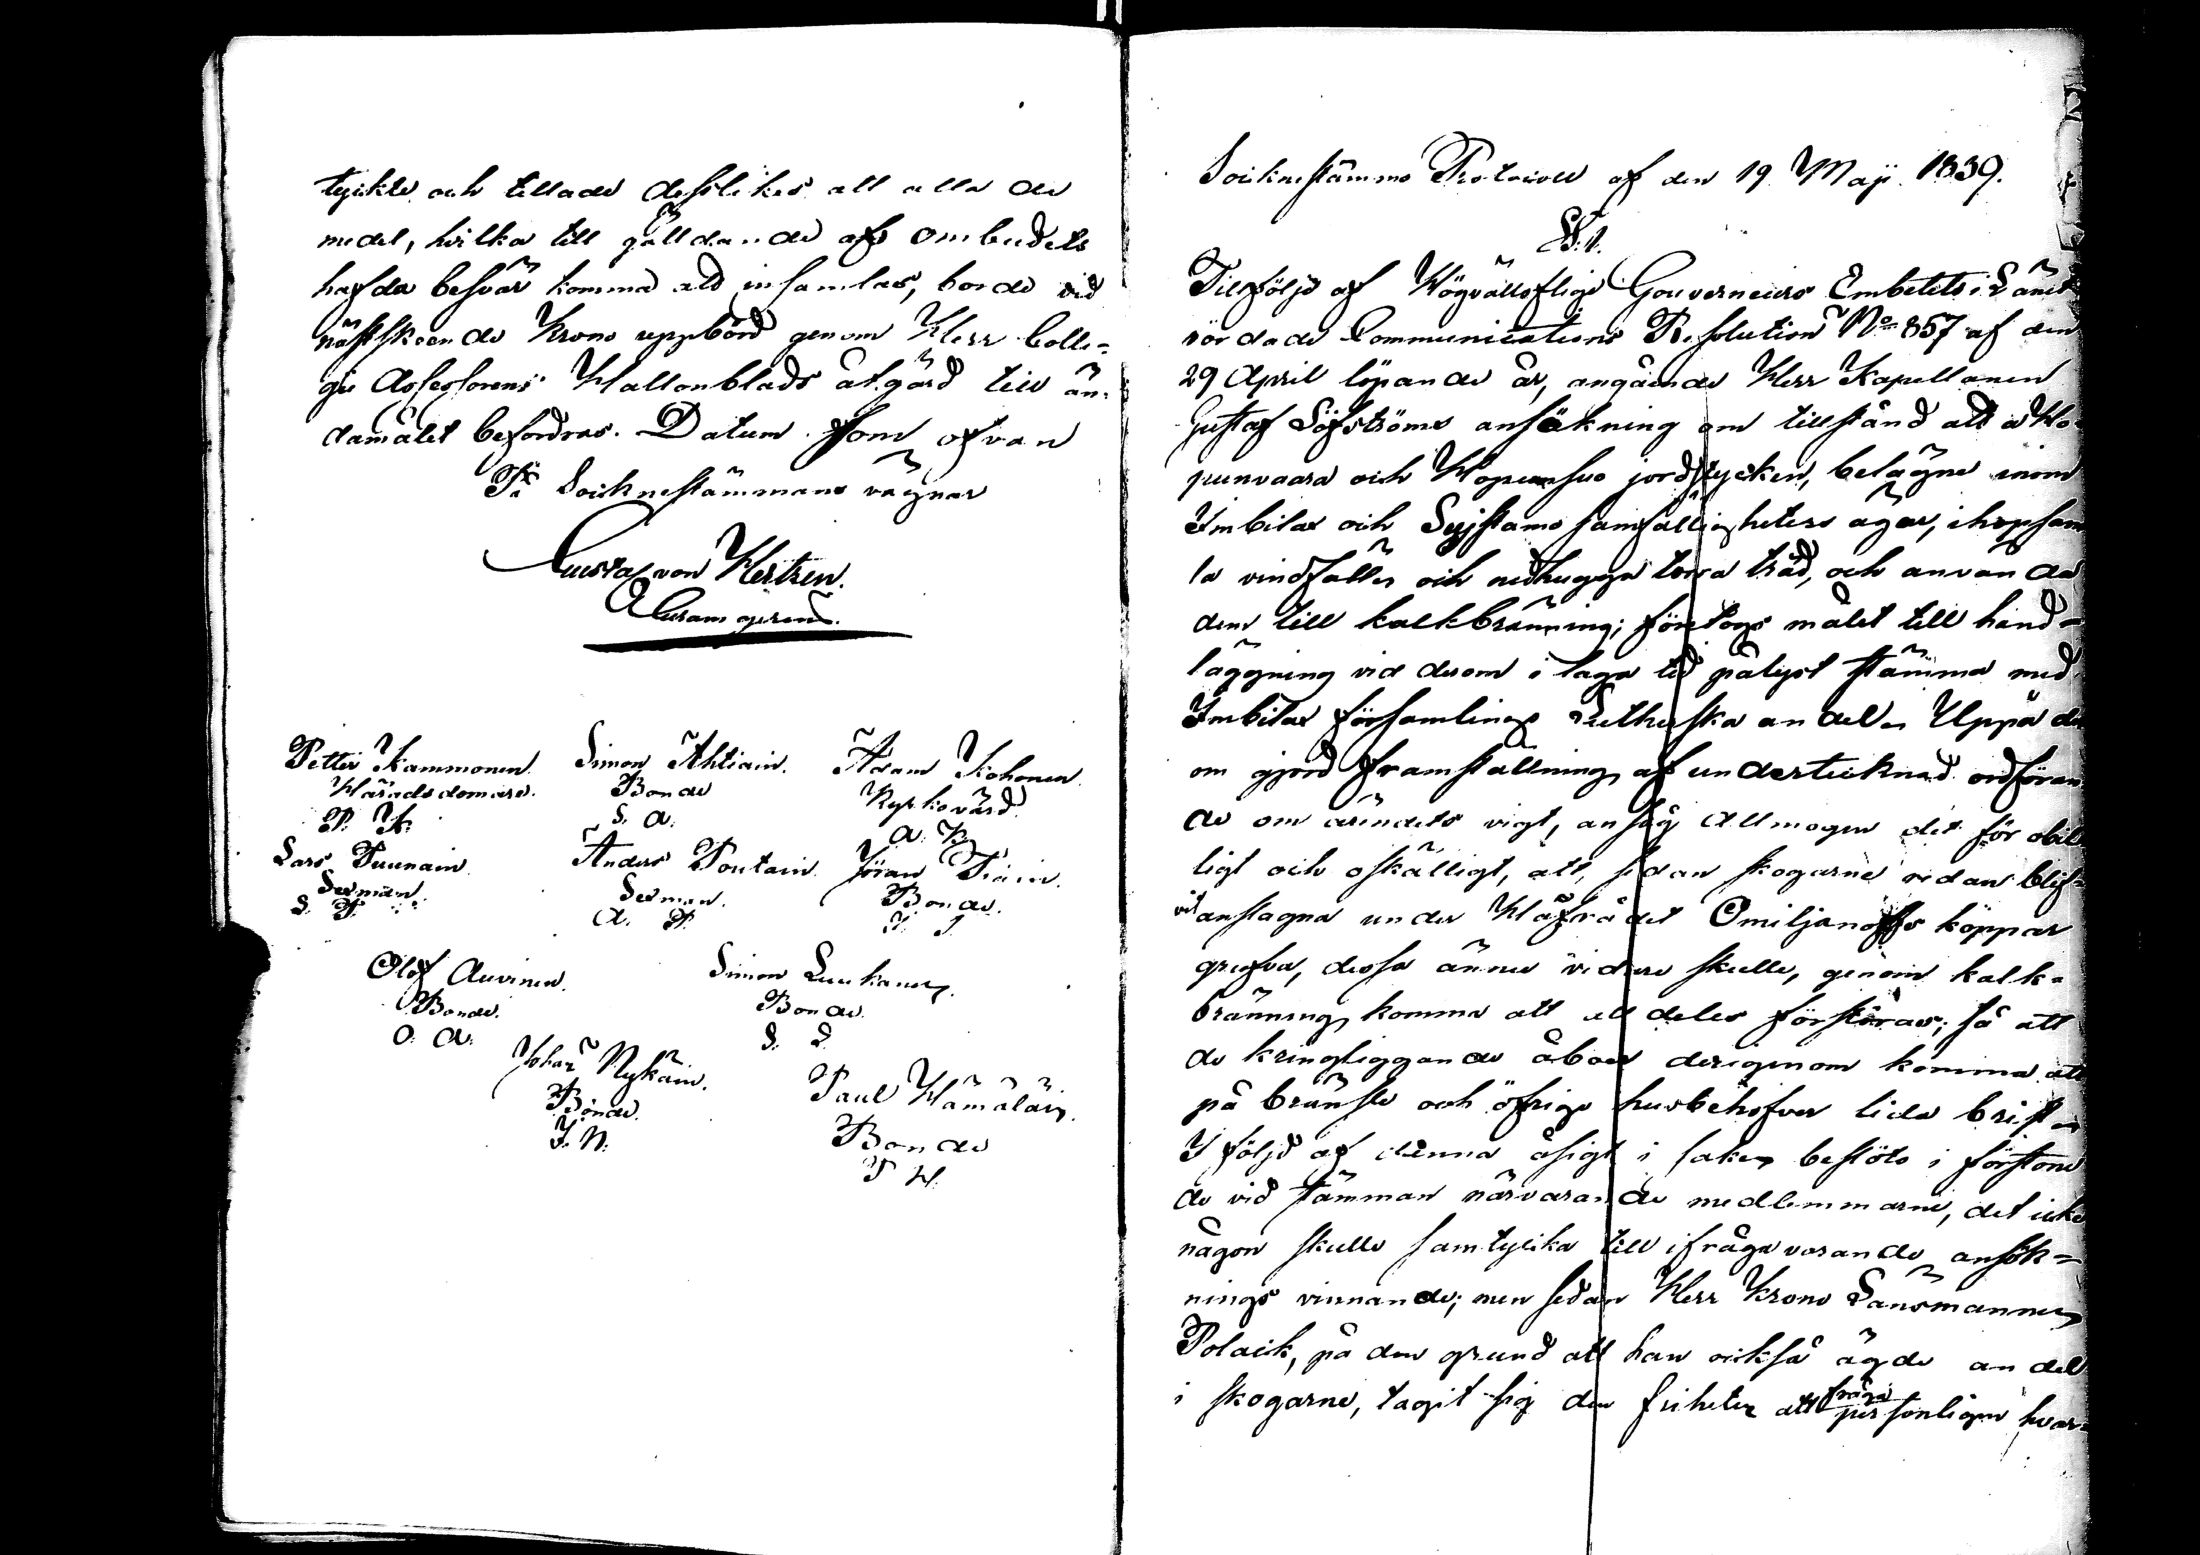 tyckte och tillade desslikes att alla de
medel, hvilka till gälldande af ombudets
hafda besvär komma att insamlas, borde vid
nästskeende Krono uppbörd genom Herr Colle-
gii Assessorens Hallonblads åtgärd till än-
damålet befordras. Datum som ofvan
På Socknestämmans vägnar
Gustaf von Hertzen.
Petter Kammonen.
Häradsdomare.
P. K.
Simon Ahtiain.
Bonde
S. A.
Adam Kohonen
Kyrkovärd.
A. K.
Lars Puunain
Sexman.
L. P.
Anders Poutain
Sexman.
A. P.
Jöran Piäin.
Bonde.
Olof Auvinen.
Bonde.
O. A.
Simon Luukanen.
Bonde.
S. L.
Johan Nykäin.
Bonde.
J. N.
Paul Hämäläin.
Bonde
P H.
Sockneståmmo Protocoll af den 19 Maji 1839.
§. 1.
Till följe af Högvälloflige Gouverneurs Embetets i Länet
vördade Communications Resolution No 857 af den
29 April löpande år, angående Herr Kapellanen
Gustaf Löfströms ansökning om tillstånd att å Ho-
punvaara och Hopunsuo jordstycken, belägne inom
Imbilax och Syjstamo samfälligheters ägor, ihopsam
la vindfällen och nedhugga torra träd, och använda
dem till kalkbränning; företogs målet till hand-
läggning vid derom i laga tid pålyst stämma med
Imbilax församlings Lutherska andel. Uppå der
om gjord framställning af undertecknad ordföran
de om ärendets vigt, ansåg Allmogen det för obil
ligt och oskäligt, att, sedan skogarne redan blif-
vit anslagna under Hofrådet Omiljanoffs koppar
grufva, dessa ännu vidare skulle, genom kalk-
bränning komma att alldeles förstöras; så att
de kringliggande åboer derigenom komma att
på bränsle och öfriga husbehofver lida brist.
I följd af denna åsigt i saken beslöto i förstone
de vid stämman närvarande medlemmarne, det icke
någon skulle samtycka till ifrågavarande ansök-
nings vinnande; men sedan Herr Krono Länsmannen
Polack, på den grund att han också ägde andel
i skogarne, tagit sig den friheten att fråga personligen hvar-